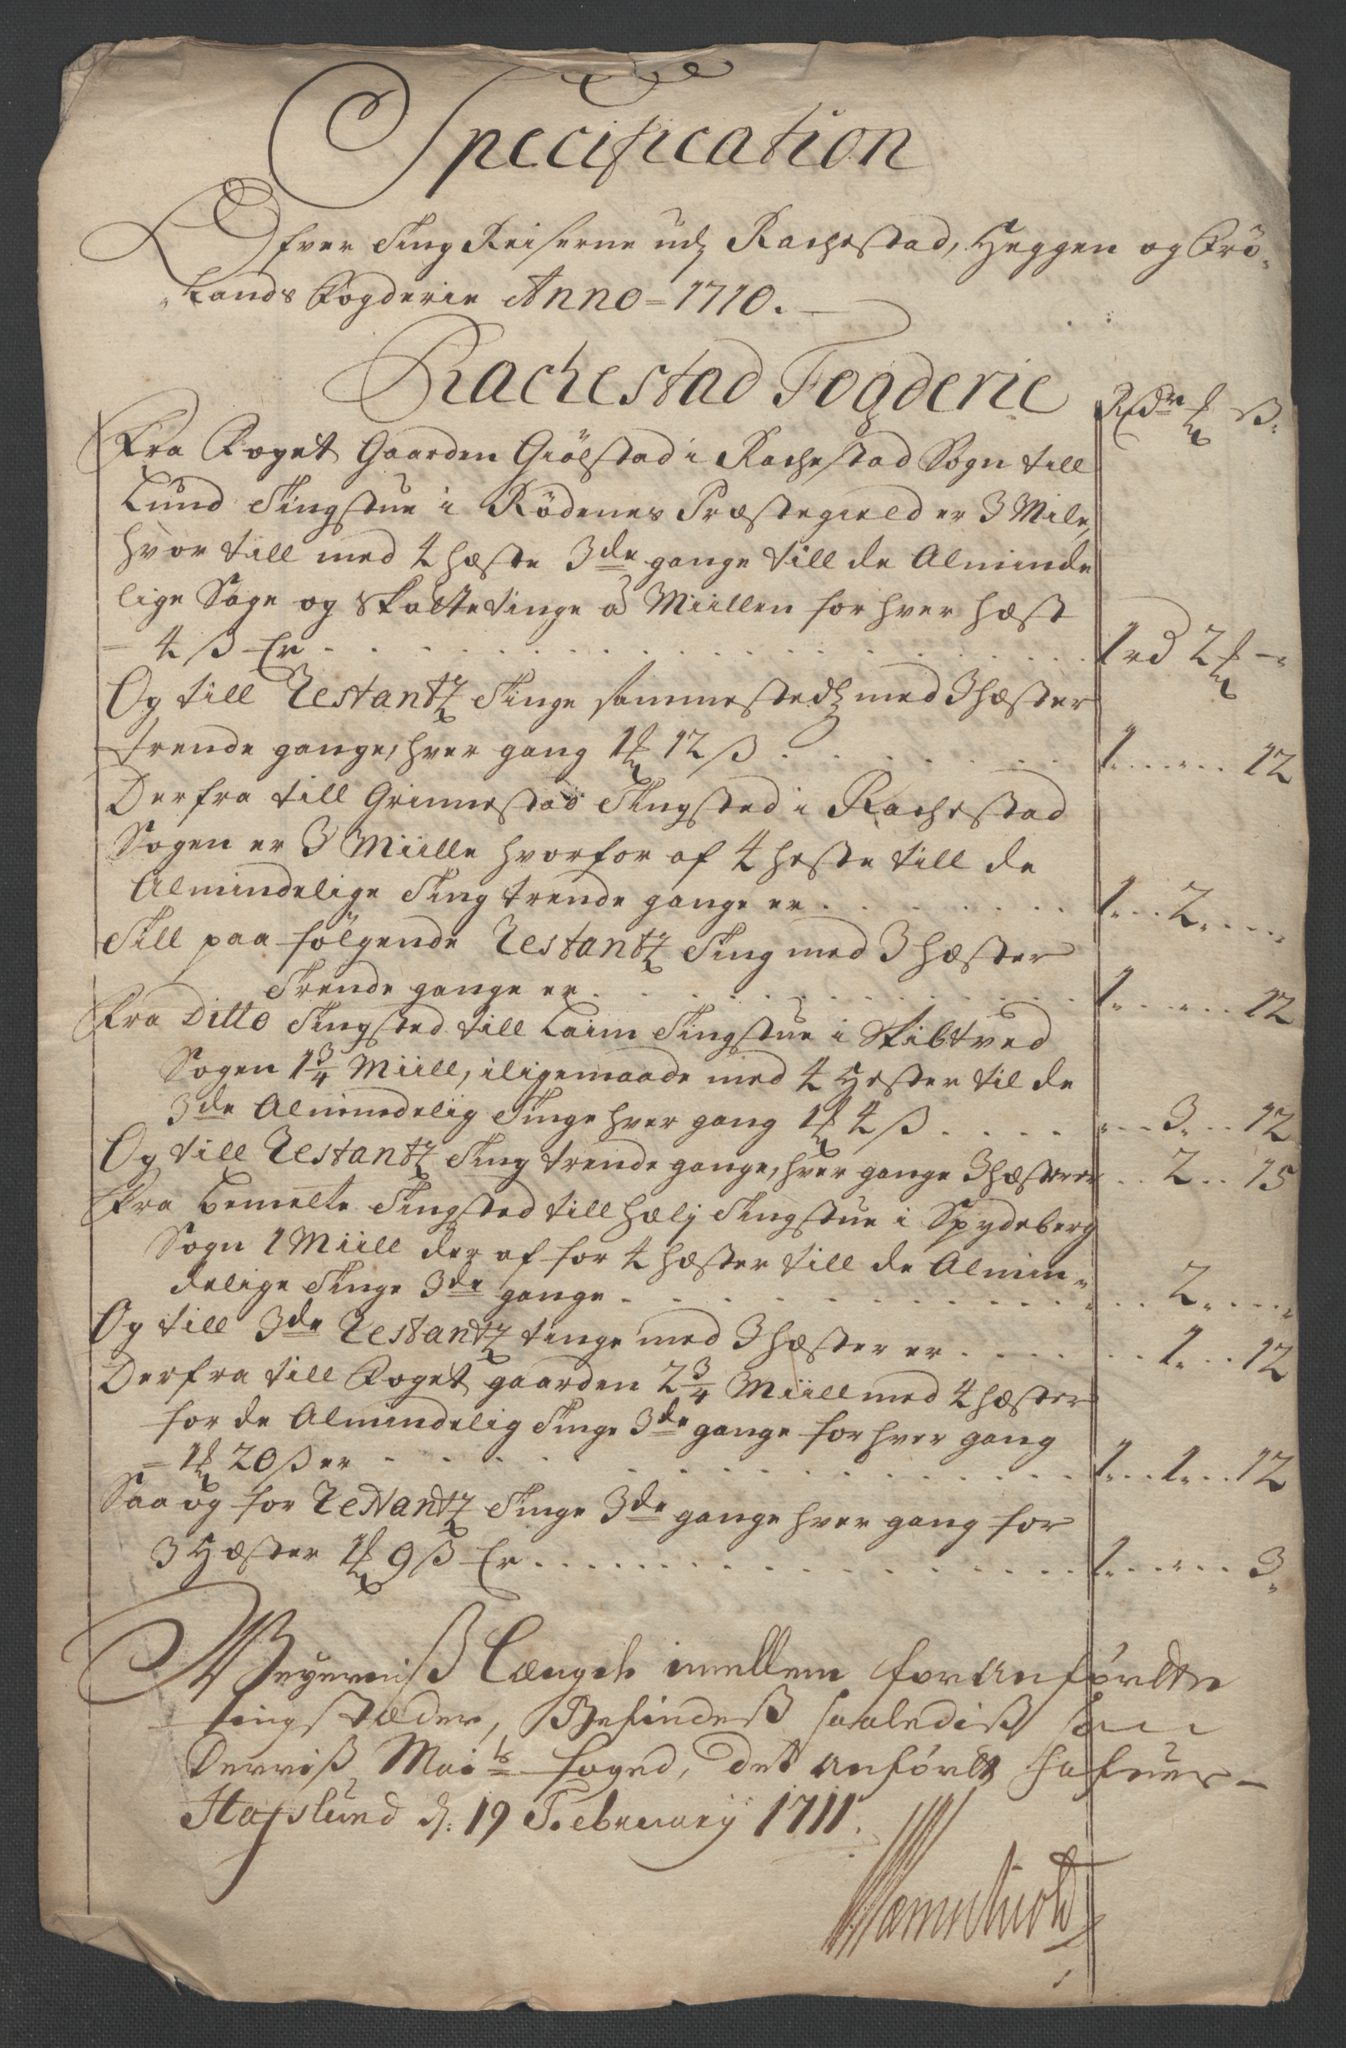 Specification
Ofver Ting Reiserne udj Rachestad, Heggen og Frö-
Lands Fogderie Anno-1710.
Rachestad Fogderie
Rdr ß.
Fra Foget Gaarden Giölstad i Rachestad Sogn till
Lund Tingstue i Rödenes Præstegield er 3 Mile,
hvor till med 4 hæste 3de gange till de Alminde
lige Sage og Skattetinge á Miillen for hver hæst
- 4 ß Er . . . 1 rd 2 -
Og till Restantz Tinge sammestedtz med 3 hæster
trende gange, hver gang 1 12 ß . . . 1 . . . 12
Derfra till Grimestad Tingsted i Rachestad
Sogen er 3 Miille hvorfor af 4 heste till de
Almindelige Ting trende gange er . . . 1 . . 2 . . .
Till paa følgende Restantz Ting med 3 hæster
Trende gange er . . . 1 . . . 12
Fra Ditto Tingsted till Laim Tingstue i Skibtved
Sogen 1 3/4 Miill, iligemaade med 4 Hester til de
3de Almindelig Tinge hver gang 1 4 ß . . . 3 . . 12
Og till Restantz Ting trende gange, hver gange 3 hæster er . . 2 . . 15
Fra bemelte Tingsted till hælj Tingstue i Spydeberg
Sogn 1 Miill der af for 4 hæster till de Almin-
delige Tinge 3de gange . . . 2 . . .
Og till 3de Restantz tinge med 3 hæster er . . . 1 . . 12
Derfra till Foget gaarden 2 3/4 Miill med 4 hæster
for de Almindelig Tinge 3de gange for hver gang
- 1 20 ß er . . . 1 . . 1 . . 12
Saa og for Restantz Tinge 3de gange hver gang for
3 Hæster 1 9 ß Er . . . 1 . . . 3.
Veyerniß Længde imellem foranførdte
tingstæder, Befindeß saalediß som
Derriß Mai:ts foged, det anførdt hafuer-
Hafslund d: 19 Februarij 1711.